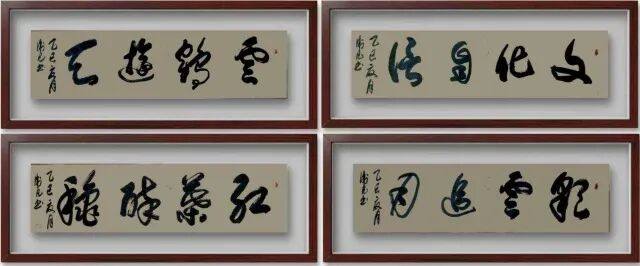 雲鶴遊天
乙巳夏月
书
文化自信
乙巳夏月
书
紅葉醉秋
乙巳夏月
书
彩雲追月
乙巳夏月
书